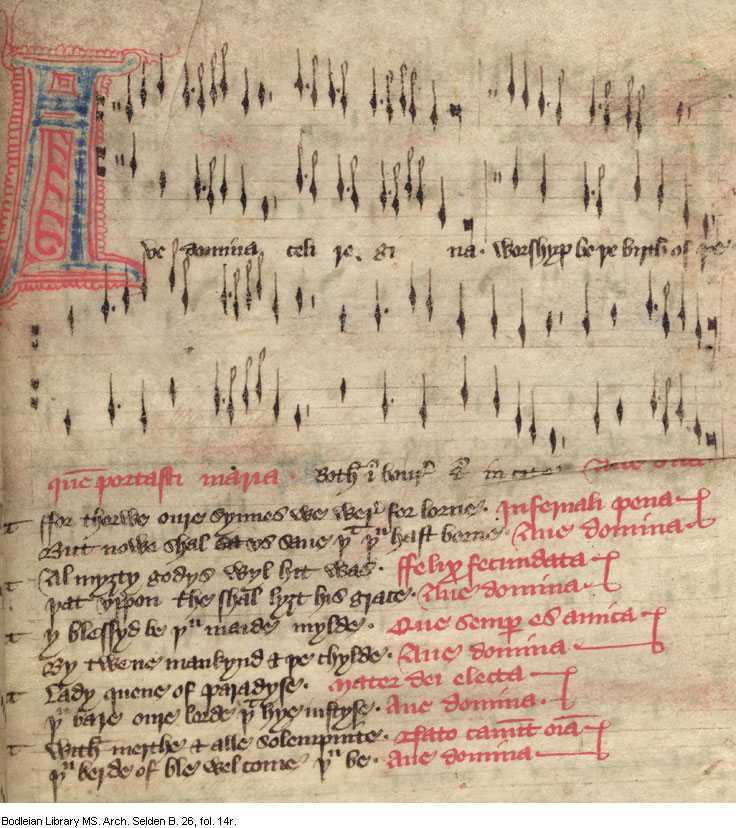 Ave domina celi regina worshyp be þe birth of þe
que portasti maria. Both ī bour̄ & in cite. Aue domi
ffor therwe oure synnes we wer for lorne. Infernali pena
But nowe shal vs saue þᵗ þᵘ hast borne. Aue domina
Al myȝty godys wyl hit was. ffelix fecundata
þat vpon the shal lyȝt his grace. Aue domina
y blessyd be þᵘ maide mylde. Que semp es amica
By twene mankynd & þe chylde. Aue domina
Lady quene of paradyse. Mater dei electa
þᵘ bare oure lorde þᵗ hye iustyse. Aue domina
With merthe & alle solempnite.
þᵘ berde of ble welcome þᵘ be. Aue domina
Bodleian Library MS. Arch. Selden B. 26, fol. 14r.